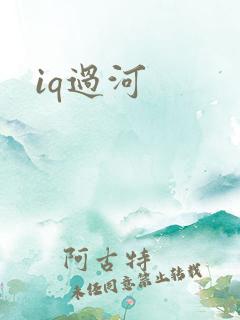 iq過河
阿古特
未经同意禁止转载